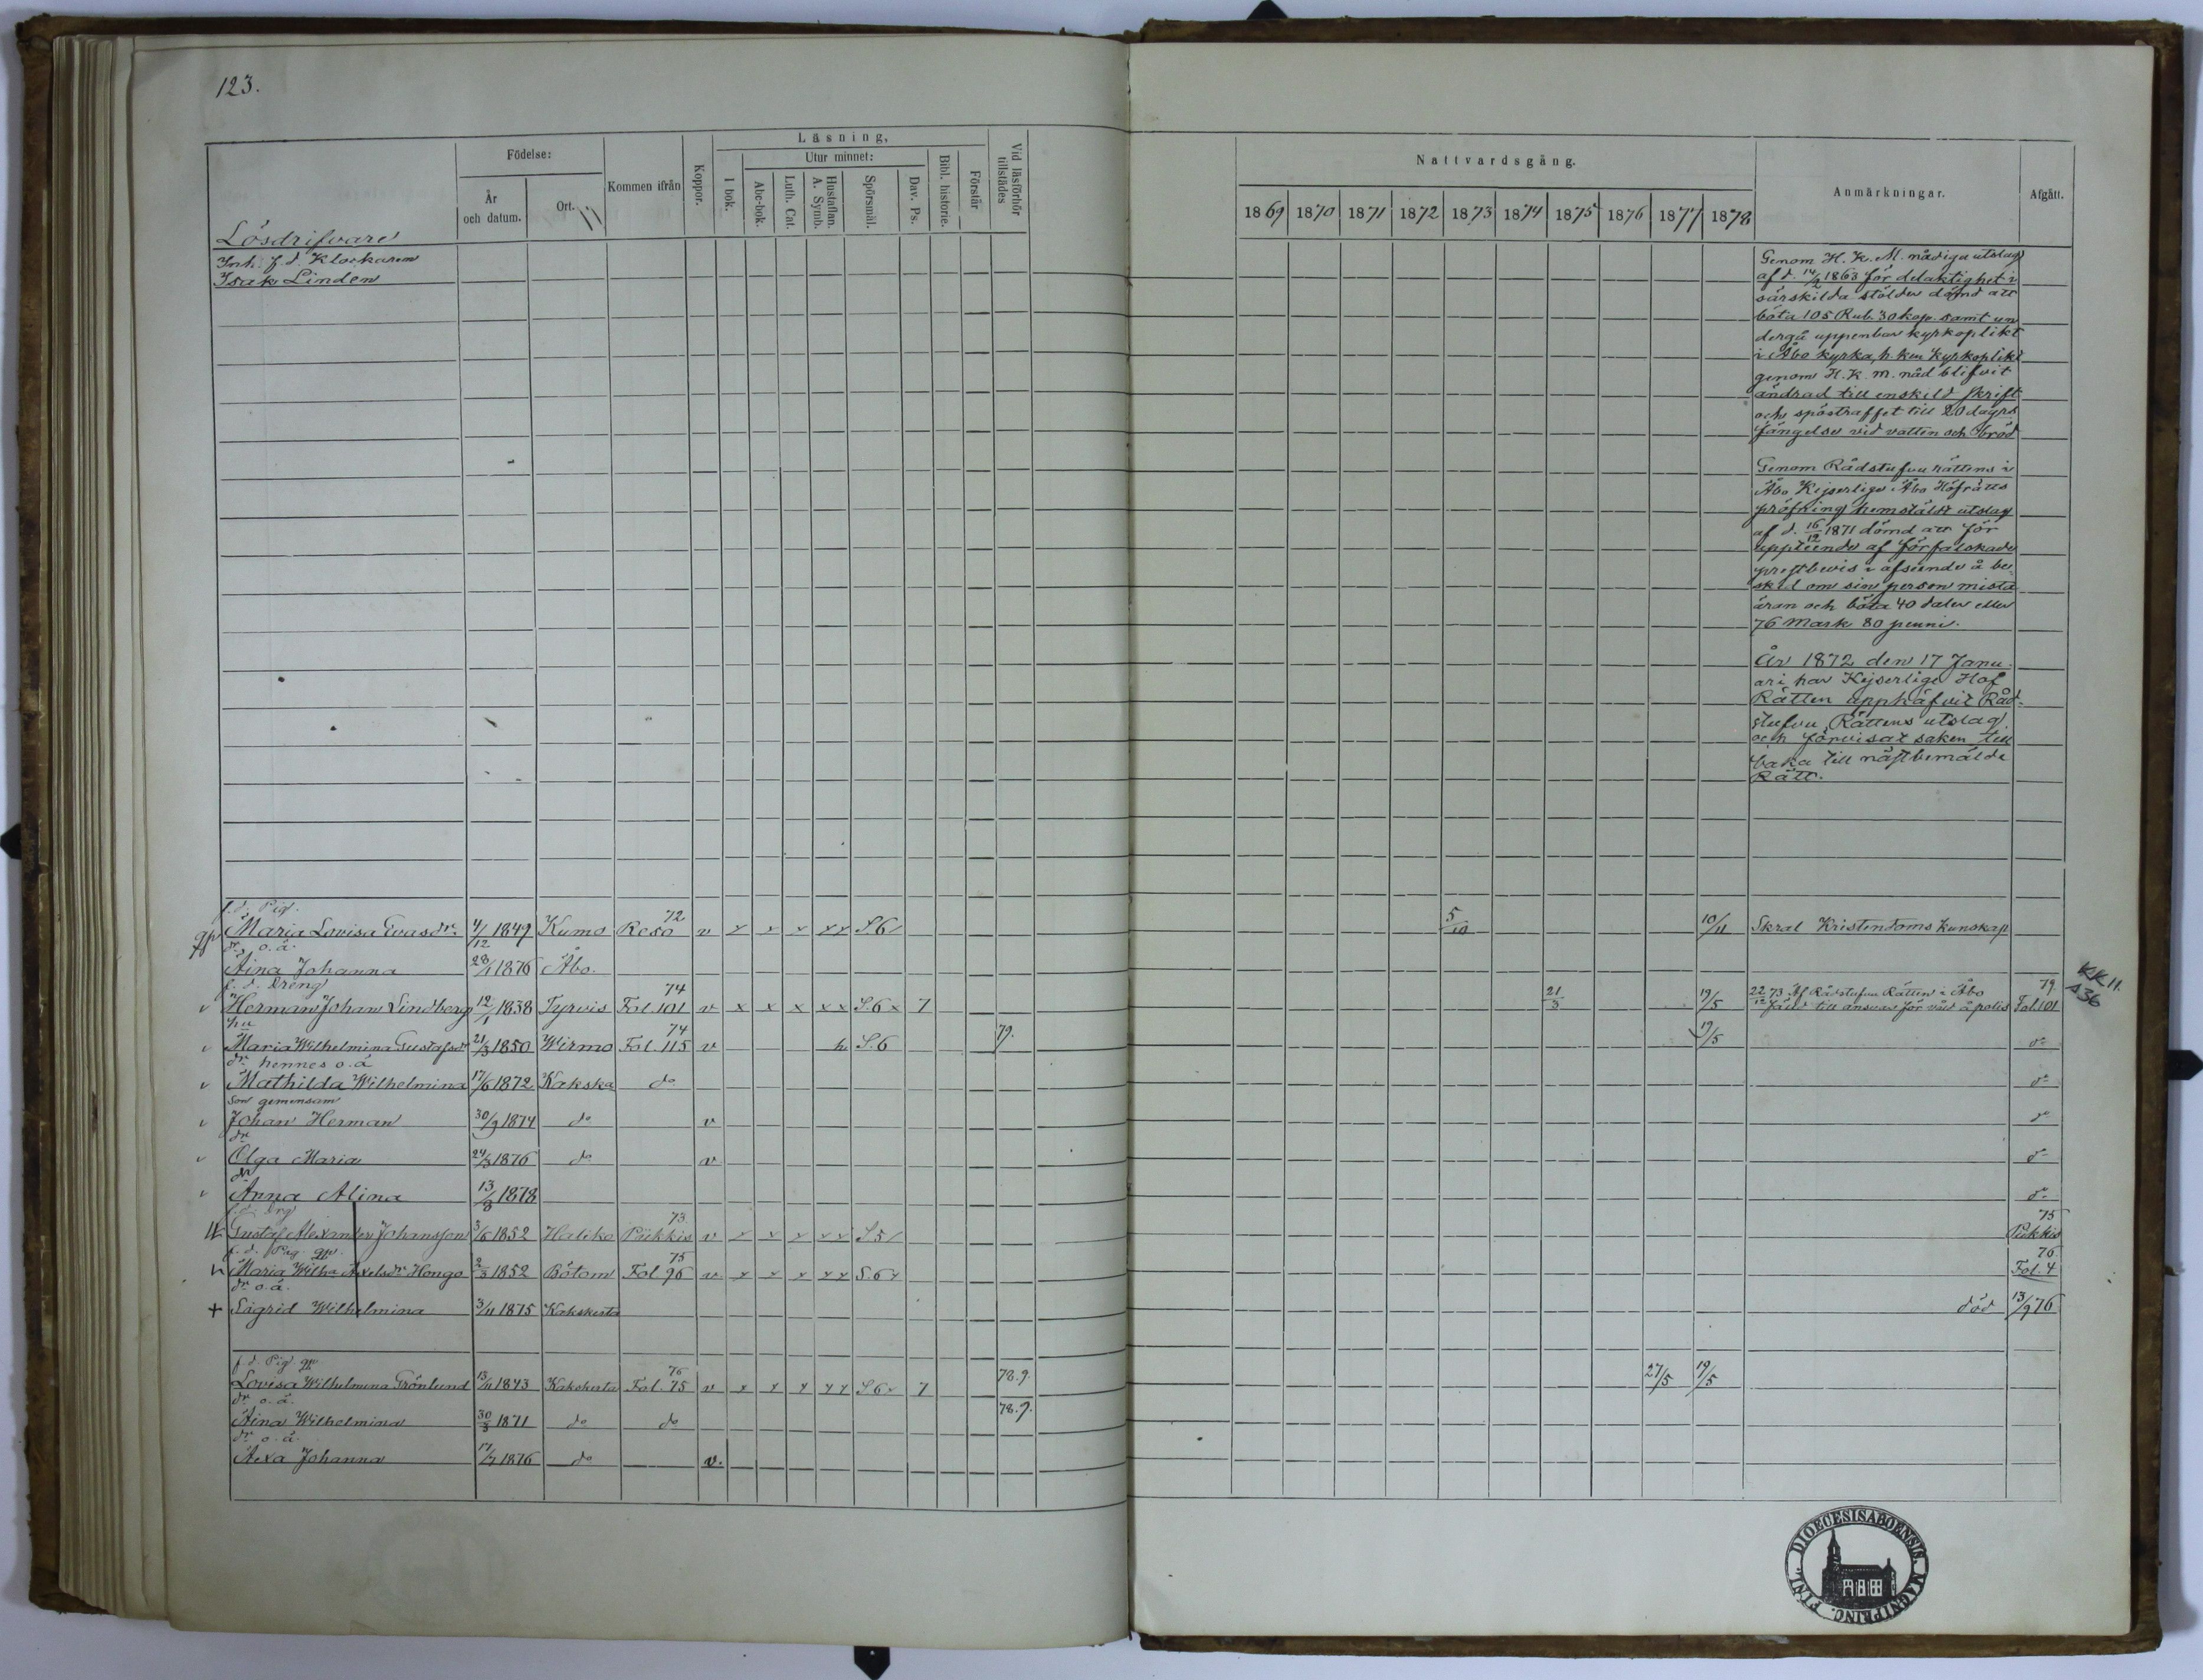 123.
Läsning,
Födelse:
Kommen ifrån
Koppor.
Utur minnet:
Bibl. historie.
Förstår
Vid läsförhör tillstädes
År och datum.
Ort.
I bok.
Abc-bok.
Luth. Cat.
Hustaflan. A. Symb.
Spörsmål.
Dav. Ps.
Nattvardsgång.
Anmärkningar.
Afgått.
1869 1870 1871 1872 1873 1874 1875 1876 1877 1878
Lösdrifvare
Inh. f. d. Klockaren
Isak Linden
Genom H. K. M. nådiga utslag
af d. 14/2 1863 för delaktighet i
särskilda stölder dömd att
böta 105 Rub. 30 kop. samt un
dergå uppenbar kyrkoplikt
i Åbo kyrka, h. ken kyrkoplikt
genom H. K. M. nåd blifvit
ändrad till enskild skrift
och spöstraffet till 20 dagrs
fängelse vid vatten och bröd
Genom Rådstufvu rättens i
Åbo Kejserliga Åbo Hofrätts
pröfning hemstäldt utslag
af d. 16/12 1871 dömd att för
uppteende af förfalskade
prestbevis i afseende å be
sked om sin person mista
äran och böta 40 daler eller
76 Mark 80 penni.
År 1872 den 17 Janu
ari har Kejserliga Hof
Rätten upphäfvit Råd-
stufvu Rättens utslag
och förvisat saken till
baka till näst bemälde
Rätt.
f. d. Pig.
gp Maria Lovisa Evasdr. 4/12 1849 Kumo 72 Reso v x x x x x S. 6 5/10 10/11 Skral Kristendoms kunskap
dr o. ä.
Aina Johanna 28/1 1876 Åbo.
f. d. Dreng
v Herman Johan Lindberg 12/1 1838 Tyrvis 74 Fol. 101 v x x x x x S. 6 x 7 21/3 19/5 22/12 73 Af Rådstufvu Rätten i Åbo
fäld till ansvar för våld å polis 79 Fol. 101
KK 11.
A 36
hu
v Maria Wilhelmina Gustafsdr 21/3 1850 Wirmo 74 Fol. 115 v h S. 6 79. 19/5 do
dr hennes o. ä
v Mathilda Wilhelmina 17/6 1872 Kakska do do
son gemensam
v Johan Herman 30/9 1874 do v do
dr
v Olga Maria 24/3 1876 do v do
dr
v Anna Alina 13/3 1878 do
f. d. Drg
Gustaf Alexander Johansson 3/6 1852 Haliko 73 Piikkis v x x x x x S. 5 75 Piikkis
f. d. Pig. gp.
Maria Wilha Axelsdr Hongo 2/3 1852 Bötom 75 Fol. 96 v x x x x x S. 6 x 76 Fol. 4
dr o. ä.
+ Sigrid Wilhelmina 3/11 1875 Kakskerta död 13/9 76
f. d. Pig. gp
Lovisa Wilhelmina Grönlund 13/11 1843 Kakskerta 76 Fol. 75 v x x x x x S. 6 x 7 78. 9. 27/5 19/5
dr o. ä.
Aina Wilhelmina 30/3 1871 do do 78. 9.
dr o. ä.
Alexa Johanna 17/7 1876 do v.
DIOECESIS ABOENSIS. MAGNI PRINC. FINL.